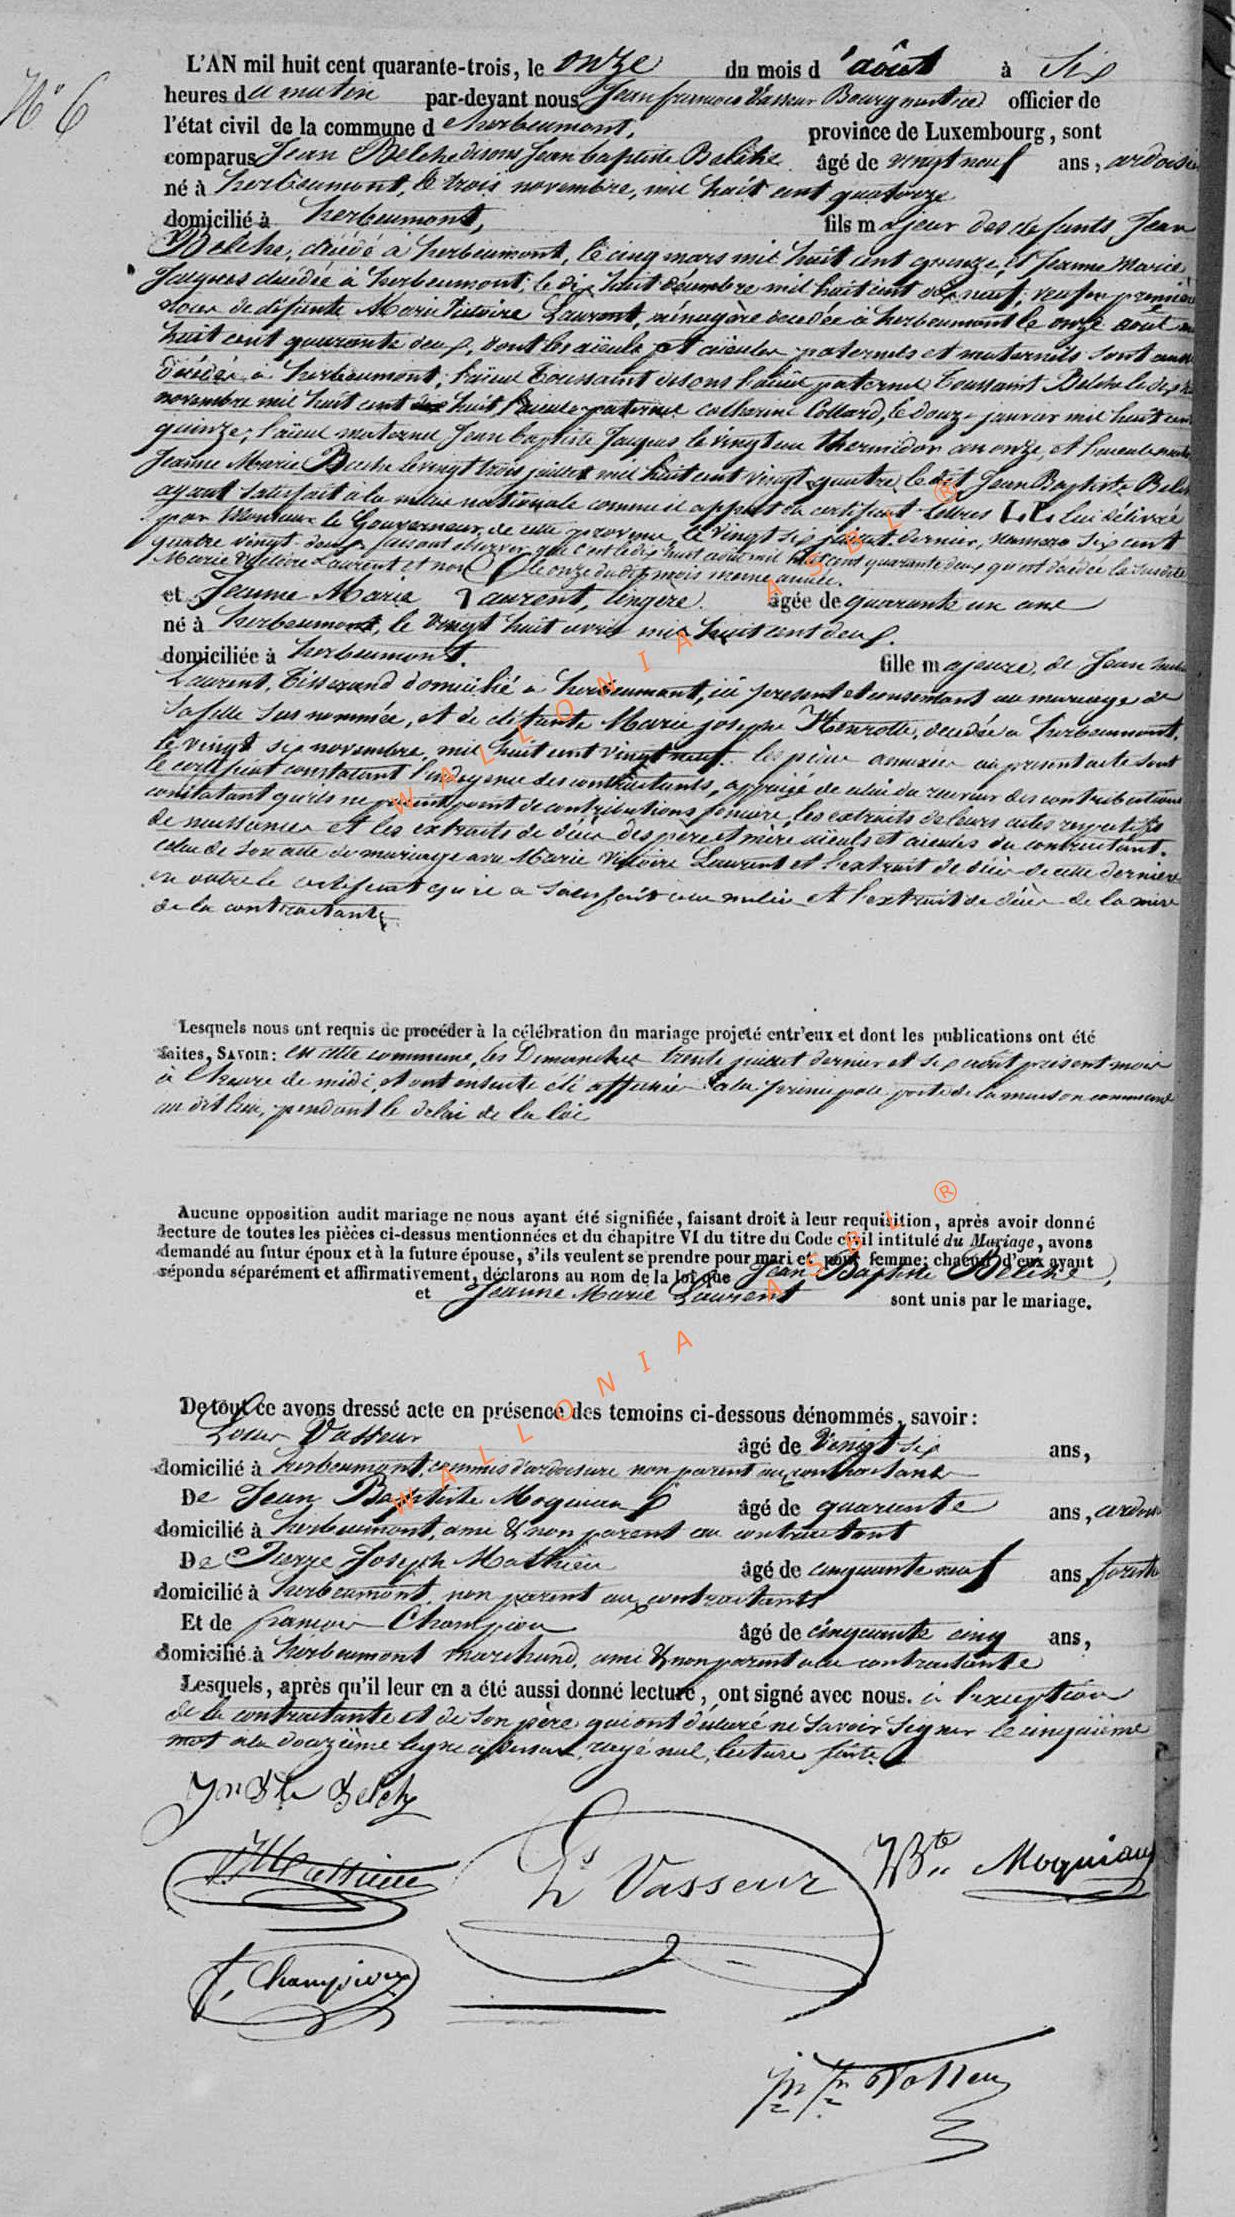 N° 6
L'AN mil huit cent quarante-trois, le onze du mois d'août à six
heures du matin par-devant nous Jean françois Vasseur Bourgmestre officier de
l'état civil de la commune d'herbeumont, province de Luxembourg, sont
comparus Jean Belche disons Jean baptiste Belche âgé de vingt neuf ans, ardoisier
né à herbeumont, le trois novembre, mil huit cent quatorze
domicilié à herbeumont, fils majeur des defunts Jean
Belche, décédé à herbeumont, le cinq mars mil huit cent quinze, et Jeanne Marie
Jacques décédée à herbeumont, le dix huit décembre mil huit cent dix neuf, veuf en premières
noces de défunte Marie Victoire Laurent, ménagère décédée à herbeumont le onze aout mil
huit cent quarante deux, dont les aïeuls et aïeules paternels et maternels sont aussi
décédés à herbeumont; l'aïeul Toussaint disons l'aïeul paternel Toussaint Belche le dix
novembre mil huit cent huit l'aieule paternel catherine Collard, le douze janvier mil huit cent
quinze; l'aïeul maternel Jean baptiste Jacques le vingt un thermidor an onze, et l'aieule
Jeanne Marie Boche le vingt trois juillet mil huit cent vingt quatre, ledit Jean Baptiste Belche
ayant satisfait à la milice nationale comme il appert du certificat lettres LL lui délivré
par Monsieur le Gouverneur de cette province, le vingt six juillet dernier, numero six cent
quatre vingt deux, faisant observer que c'est le dix huit aout mil huit cent quarante deux qu'est décédée la susdite
Marie Victoire Laurent et non le onze dudit mois meme année.
et Jeanne Marie Laurent, lingère. âgée de quarante un ans
né à herbeumont, le vingt huit avril mil huit cent deux.
domiciliée à herbeumont. fille majeure, de Jean
Laurent, Tisserand domicilié à herbeumont, ici present et consentant au mariage de
sa fille sus nommée, et de défunte Marie joseph Henrotte, decédée à herbeumont,
le vingt six novembre, mil huit cent vingt neuf. les pièces annexées au present acte sont
le certificat constatant l'indigence des contractants, appuyé de celui du receveur des contributions
constatant qu'ils ne paient point de contributions foncière, les extraits de leurs actes respectifs
de naissances et les extraits de décès des père et mère aïeuls et aieules du contractant.
celui de son acte de mariage avec Marie Victoire Laurent et l'extrait de décès de cette dernière
en outre le certificat qu'il a satisfait à la milice et l'extrait de décès de la mère
de la contractante.
Lesquels nous ont requis de procéder à la célébration du mariage projeté entr'eux et dont les publications ont été
faites, SAVOIR: en cette commune, les Dimanches trente juillet dernier et six août présent mois
à l'heure de midi, et ont ensuite été affichées à la principale porte de la maison commune
au dit lieu, pendant le délai de la loi
Aucune opposition audit mariage ne nous ayant été signifiée, faisant droit à leur requisition, après avoir donné
lecture de toutes les pièces ci-dessus mentionnées et du chapitre VI du titre du Code civil intitulé du Mariage, avons
demandé au futur époux et à la future épouse, s'ils veulent se prendre pour mari et pour femme; chacun d'eux ayant
répondu séparément et affirmativement, déclarons au nom de la loi que Jean Baptiste Belche,
et Jeanne Marie Laurent sont unis par le mariage.
De tout ce avons dressé acte en présence des temoins ci-dessous dénommés, savoir:
Louis Vasseur âgé de vingt six ans,
domicilié à herbeumont, commis d'ardoisière non parent aux contractants
De Jean Baptiste Moquiau âgé de quarante ans, ardoisier
domicilié à herbeumont, ami & non parent au contractant
De Pierre Joseph Mathieu âgé de cinquante neuf ans, forestier
domicilié à herbeumont, non parent aux contractants
Et de françois Champion âgé de cinquante cinq ans,
domicilié à herbeumont marchand, ami & non parent à la contractante
Lesquels, après qu'il leur en a été aussi donné lecture, ont signé avec nous. à l'exception
de la contractante et de son père, qui ont déclaré ne savoir signer le cinquième
mot à la douzième ligne ci dessus, rayé nul, lecture faite.
Jn Bte Belche
Mathieu
Ls Vasseur
JBte Moquiau
f. Champion
jn fr Vasseur
WALLONIA ASBL ®
WALLONIA ASBL ®